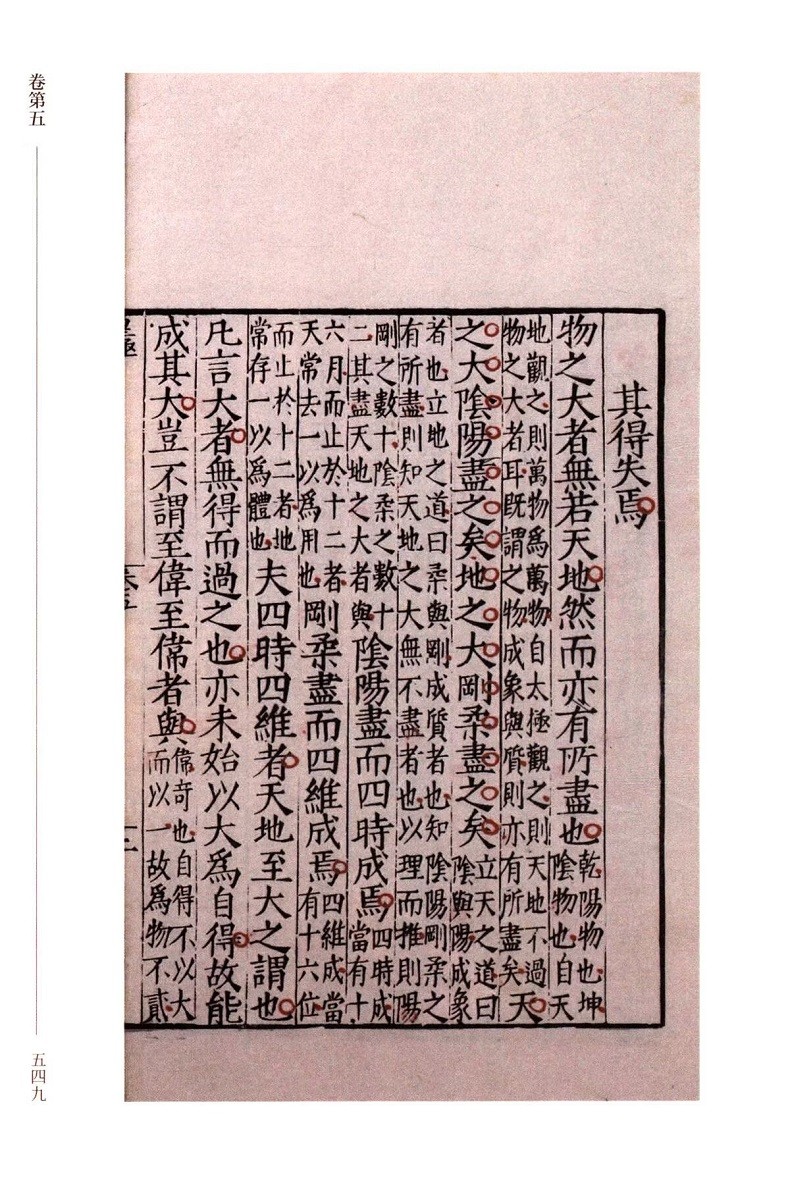 卷第五
其得失焉
物之大者無若天地然而亦有所盡也
乾陽物也坤
陰物也自天
地觀之則萬物爲萬物自太極觀之則天地不過
物之大者耳既謂之物成象與質則亦有所盡矣
天
之大陰陽盡之矣地之大剛柔盡之矣
立天之道曰
陰與陽成象
者也立地之道曰柔與剛成質者也知陰陽剛柔之
有所盡則知天地之大無不盡者也以理而推則陽
剛之數十陰柔之數十
二其盡天地之大者與
陰陽盡而四時成焉
四時成
當有十
六月而止於十二者
天常去一以爲用也
剛柔盡而四維成焉
四維成當
有十六位
而止於十二者地
常存一以爲體也
夫四時四維者天地至大之謂也
凡言大者無得而過之也亦未始以大爲自得故能
成其大豈不謂至偉至偉者與
偉奇也自得不以大
而以一故爲物不貳
五四九